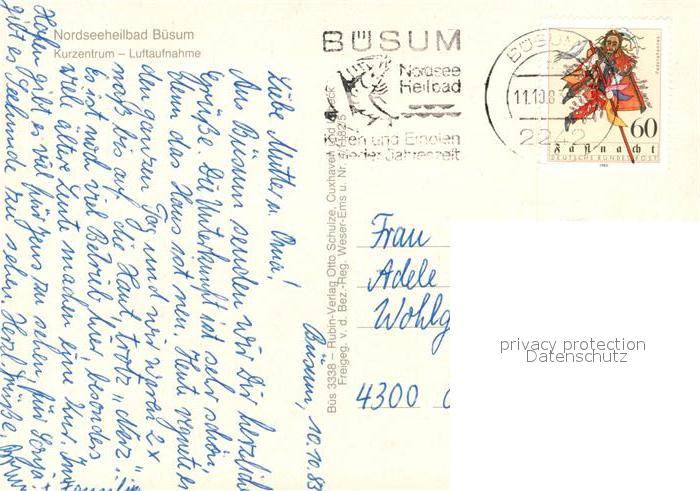 Nordseeheilbad Büsum
Kurzentrum – Luftaufnahme
BÜSUM
Nordsee
Heilbad
Kuren und Erholen
jeder Jahreszeit
BÜSUM
11.10.8
2242
60
Faßnacht
DEUTSCHE BUNDESPOST
Büs 3338 – Rubin-Verlag Otto Schulze, Cuxhaven
Freigeg. v. d. Bez.-Reg. Weser-Ems u. Nr.
Büsum, 10.10.83
Liebe Mutter u. Oma!
Aus Büsum senden wir Dir herzliche
Grüße. Die Unterkunft ist sehr schön,
denn das Haus ist neu. Heut regnet es
den ganzen Tag und wir waren 2x
naß bis auf die Haut, trotz
Es ist noch viel Betrieb hier, besonders
viele ältere Leute machen eine Kur. Im
Hafen gibt es viel für Jens zu sehen, für Sonja
gibt es Seehunde zu sehen. Herzl. Grüße
Frau
Adele
Wohlg
4300
privacy protection
Datenschutz